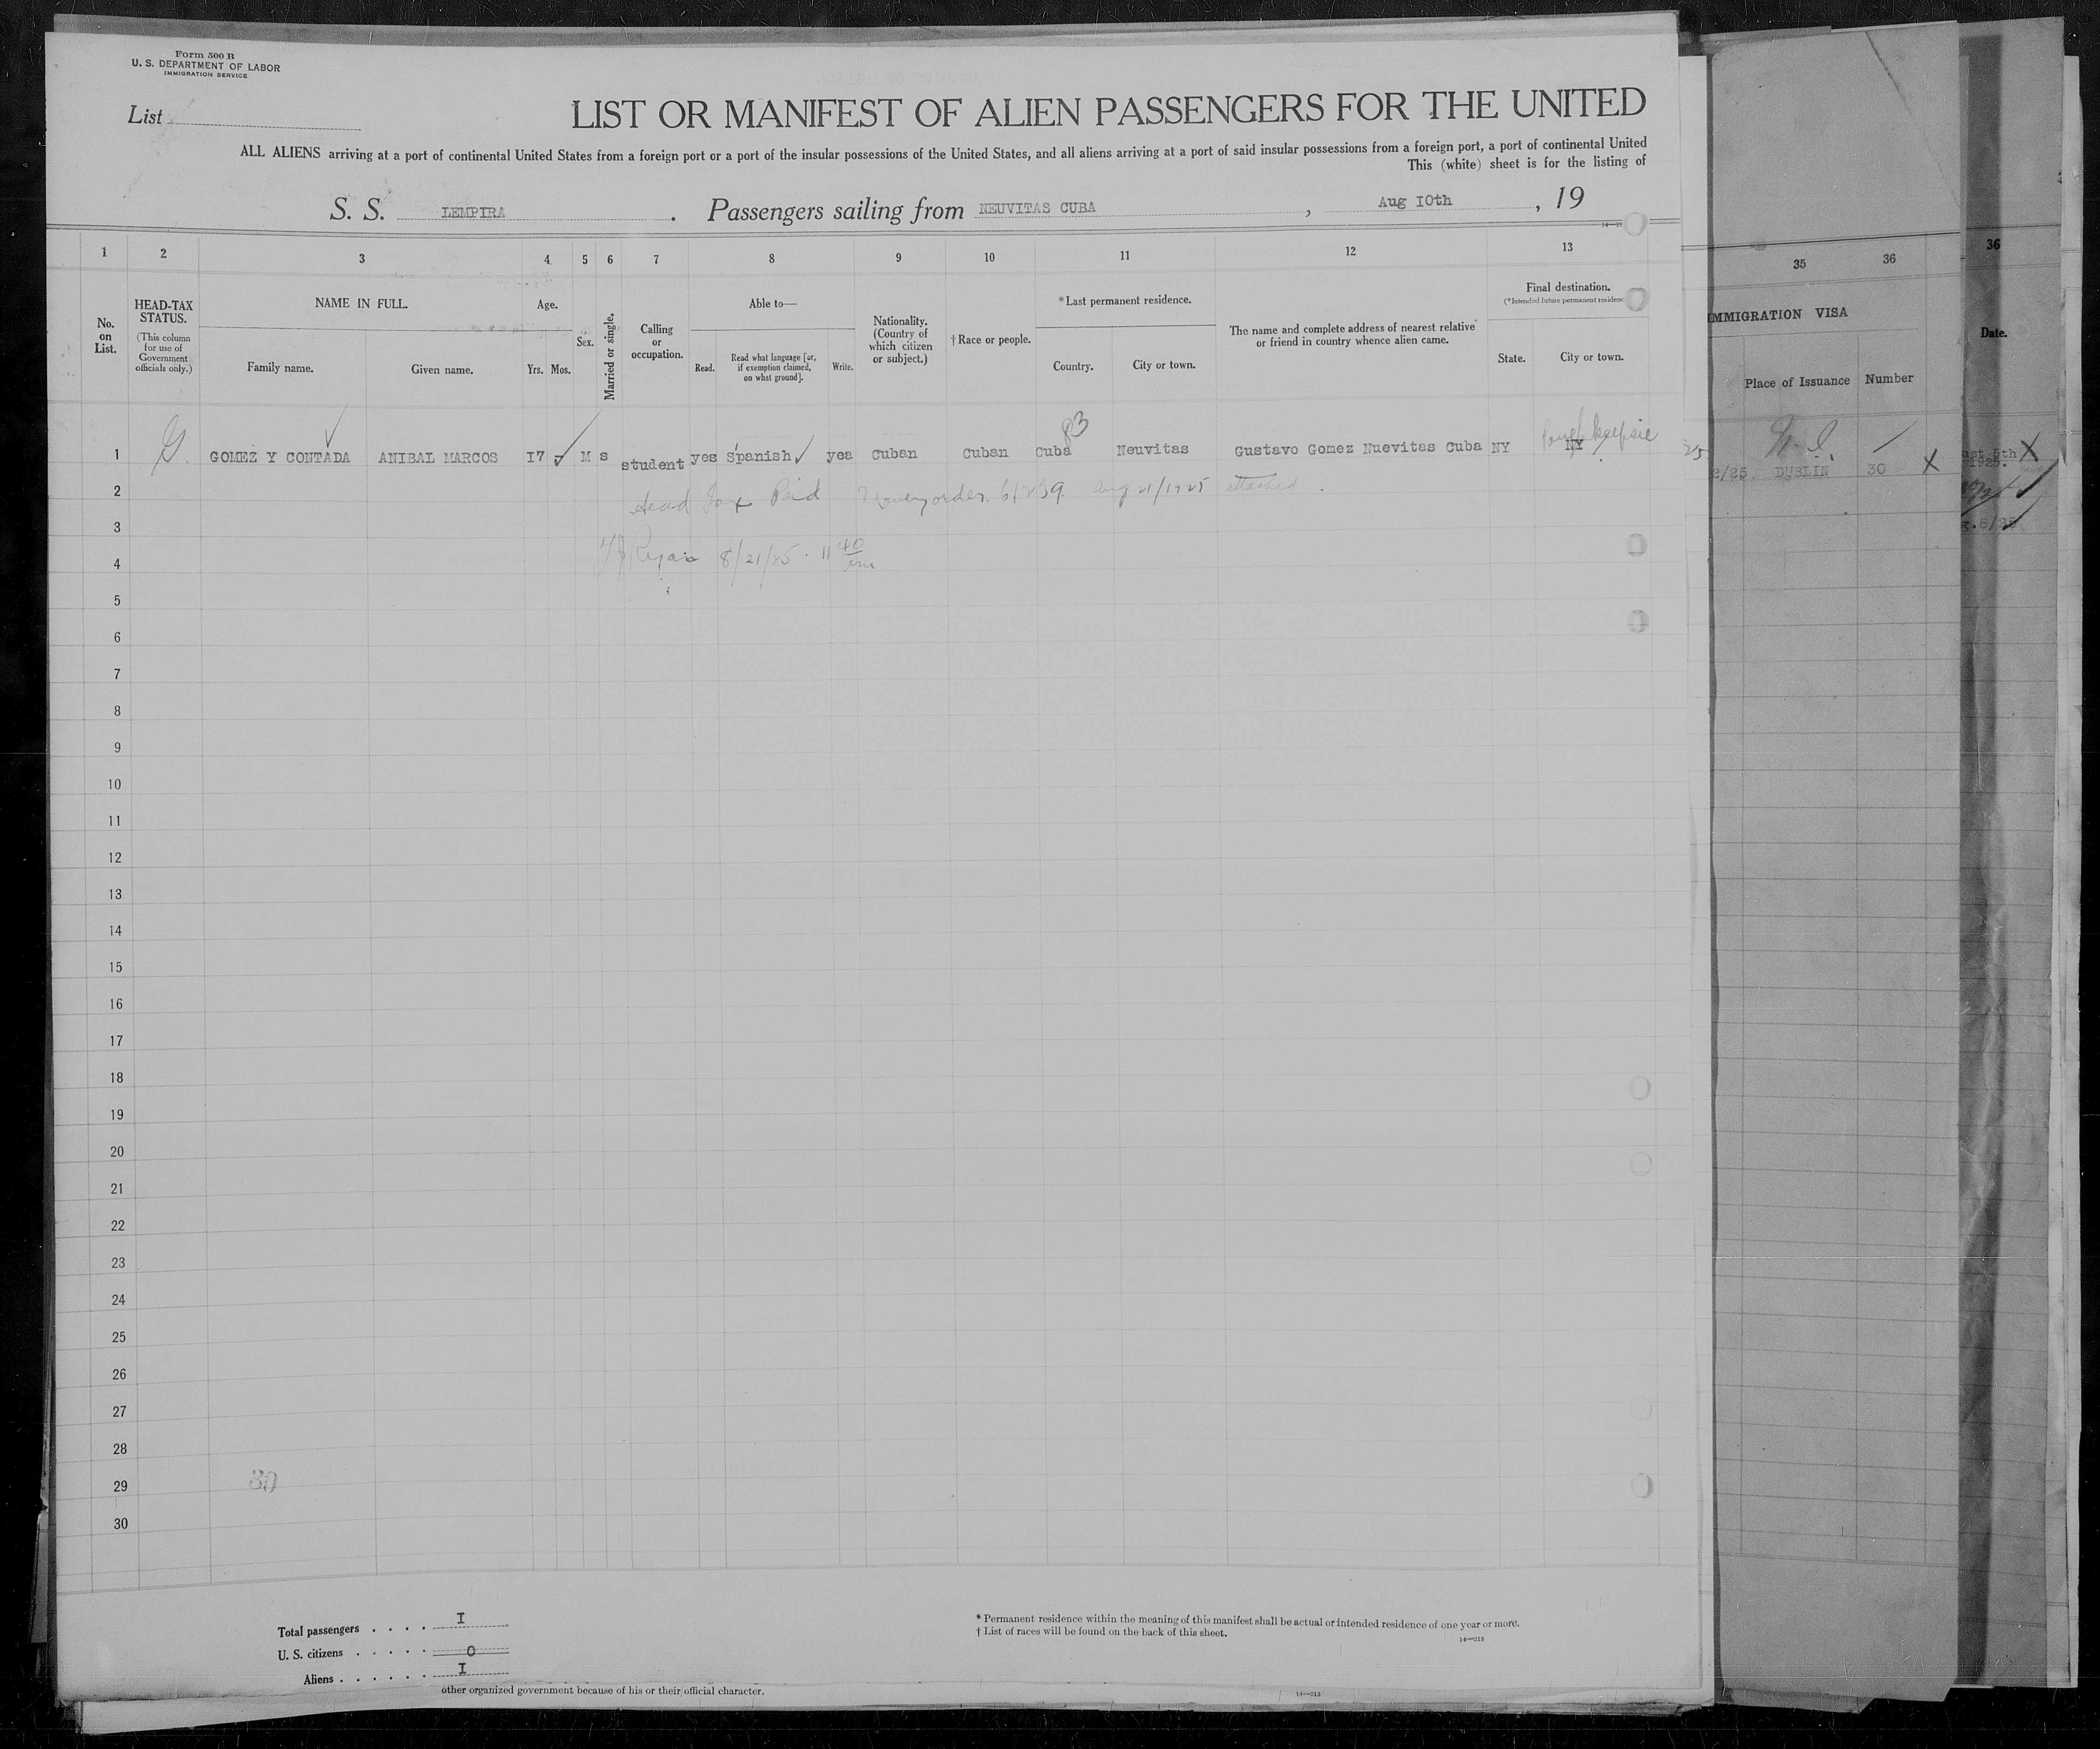 Form 500 B
U. S. DEPARTMENT OF LABOR
IMMIGRATION SERVICE
List
LIST OR MANIFEST OF ALIEN PASSENGERS FOR THE UNITED
ALL ALIENS arriving at a port of continental United States from a foreign port or a port of the insular possessions of the United States, and all aliens arriving at a port of said insular possessions from a foreign port, a port of continental United
This (white) sheet is for the listing of
S. S. LEMPIRA . Passengers sailing from NEUVITAS CUBA , Aug I0th , 19
1 2 3 4 5 6 7 8 9 10 11 12 13
No. on List.
HEAD-TAX STATUS.
(This column for use of Government officials only.)
NAME IN FULL.
Family name.
Given name.
Age.
Yrs. Mos.
Sex.
Married or single.
Calling or occupation.
Able to—
Read.
Read what language [or, if exemption claimed, on what ground].
Write.
Nationality. (Country of which citizen or subject.)
† Race or people.
* Last permanent residence.
Country.
City or town.
The name and complete address of nearest relative or friend in country whence alien came.
Final destination.
(* Intended future permanent residence
State.
City or town.
35 36
IMMIGRATION VISA
Place of Issuance
Number
36
Date.
83
1 GOMEZ Y CONTADA ANIBAL MARCOS I7 M s student yes Spanish yea Cuban Cuban Cuba Neuvitas Gustavo Gomez Nuevitas Cuba NY NY Poughkeepsie
2/25 DUBLIN 30
5th
1925.
8/25
2 Head Tax Paid Money order Aug 21/1925 attached
3
4 Ryan 8/21/25 11 40
5
6
7
8
9
10
11
12
13
14
15
16
17
18
19
20
21
22
23
24
25
26
27
28
29 30
30
Total passengers . . . . I
U. S. citizens . . . . . 0
Aliens . . . . . . I
* Permanent residence within the meaning of this manifest shall be actual or intended residence of one year or more.
† List of races will be found on the back of this sheet.
14—213
other organized government because of his or their official character.
14—213